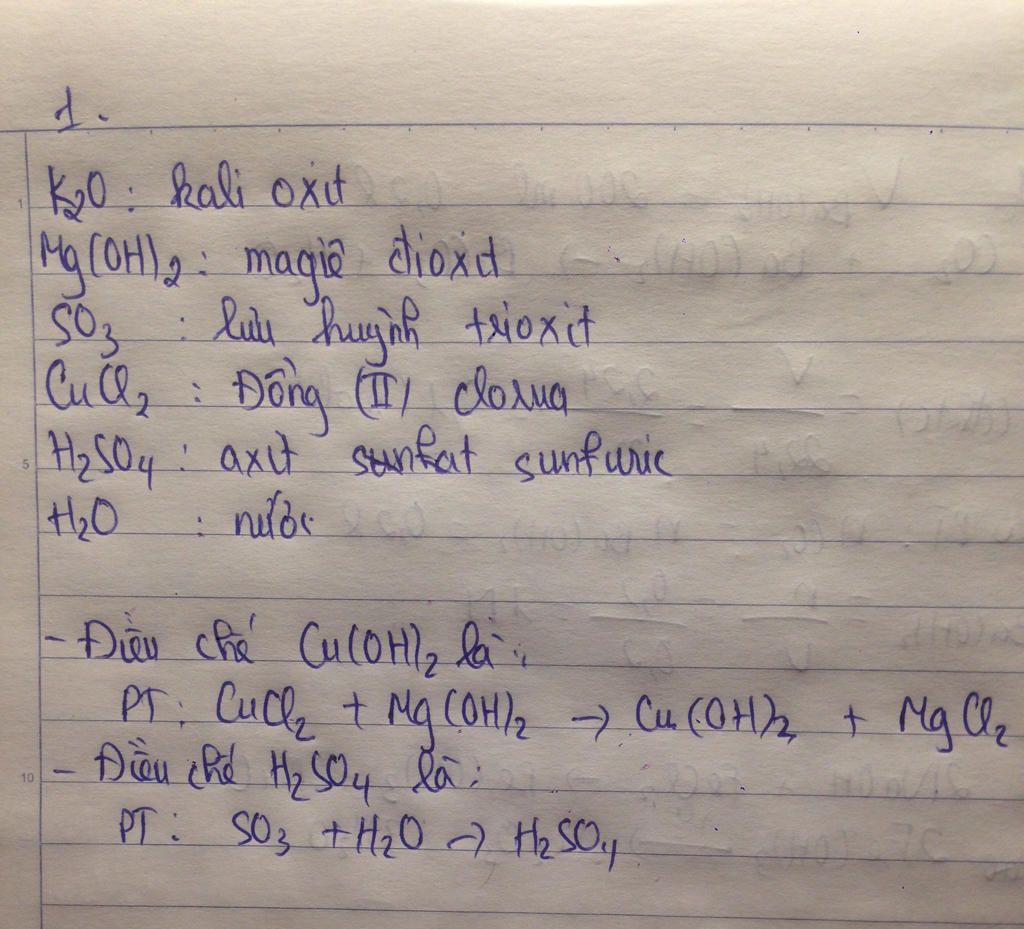 1.
K₂O : kali oxit
Mg(OH)₂ : magiê đioxit
SO₃ : lưu huỳnh trioxit
CuCl₂ : Đồng (II) clorua
H₂SO₄ : axit sunfat sunfuric
H₂O : nước
- Điều chế Cu(OH)₂ là :
PT : CuCl₂ + Mg(OH)₂ → Cu(OH)₂ + MgCl₂
- Điều chế H₂SO₄ là :
PT : SO₃ + H₂O → H₂SO₄